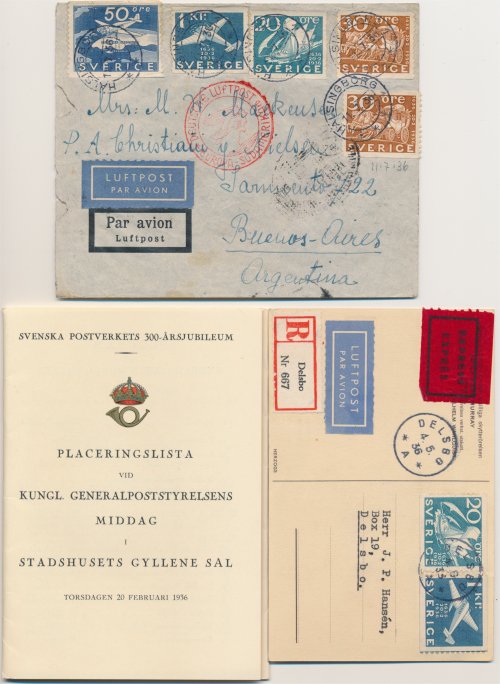 50 ÖRE
SVERIGE
1 KR.
1636
1936
SVERIGE
20 ÖRE
SVERIGE
30 ÖRE
SVERIGE
30 ÖRE
SVERIGE
HÄLSINGBORG
Mrs: M. V.
P. A. Christiani y Nielsen
Sarmiento 1
11.7.36
LUFTPOST
PAR AVION
Par avion
Luftpost
Buenos-Aires
Argentina
SVENSKA POSTVERKETS 300-ÅRSJUBILEUM
PLACERINGSLISTA
VID
KUNGL. GENERALPOSTSTYRELSENS
MIDDAG
I
STADSHUSETS GYLLENE SAL
TORSDAGEN 20 FEBRUARI 1936
R
Delsbo
Nr 667
LUFTPOST
PAR AVION
EXPRESS
EXPRÈS
HERZOGS
DELSBO
4.5.
36
* A *
Herr J. P. Hansén,
Box 19,
Delsbo.
20 ÖRE
SVERIGE
1 KR.
SVERIGE